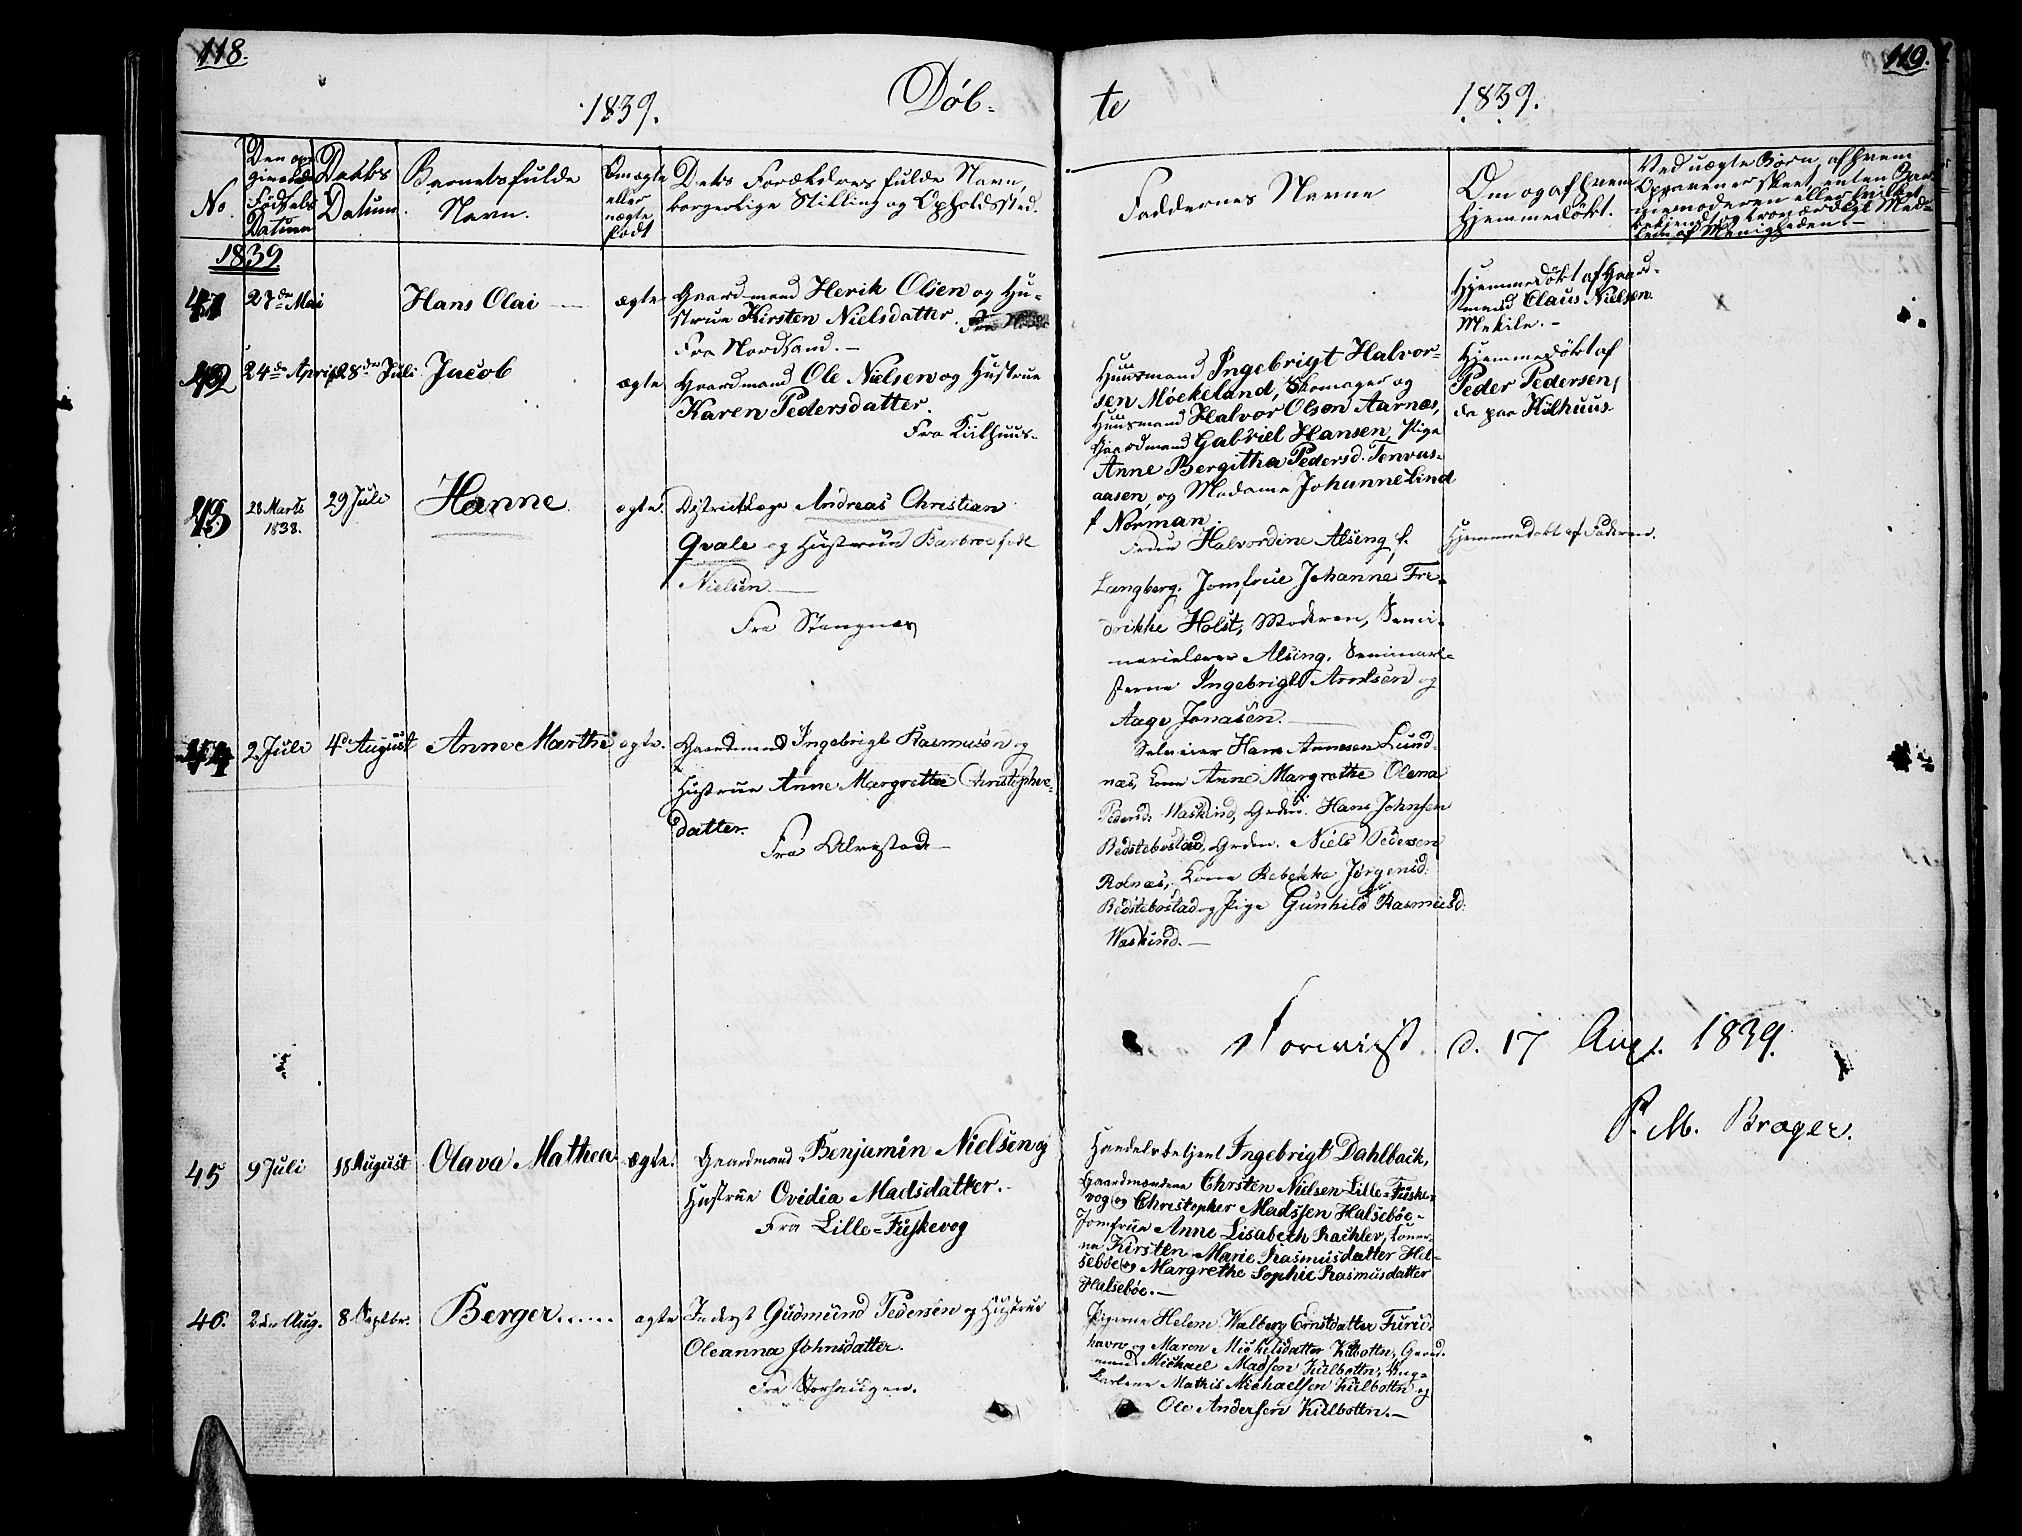 118.
119.
1839.
Døb-
te
1839.
No.
Den op-
givelse
Fødsels
Datum
Daabs
Datum.
Barnets fulde
Navn.
Om ægte
eller
uægte
født
Dets Forældres fulde Navn,
borgerlige Stilling og Opholdssted.
Faddernes Navne
Om og af hvem
Hjemmedøbt.
Ved uægte Børn, af hvem
Opgaven er skeet enten Bar-
nemoderen eller hvilket
bekjendt og troværdigt Med-
lem af Menigheden.
1839
41
27de Mai
Hans Olai
ægte
Gaardmand Henrik Olsen og Hu-
strue Kirsten Nielsdatter.
Fra Nordsand.
Hjemmedøbt af Gaard-
mand Claus Nielsen
42
24de April
28de Juli
Jacob
ægte
Gaardmand Ole Nielsen og Hustrue
Karen Pedersdatter.
Fra Kilhuus-
Huusmand Ingebrigt Halvor-
sen Møekeland, Skomager og
Huusmand Halvor Olsen Aarnæs,
Gaardmand Gabriel Hansen, Pige
Anne Bergitha Pedersd. Tennvas-
aasen, og Madame Johanne Lind
f Norman.
Hjemmedøbt af
Peder Pedersen,
da paa Kilhuus
43
28 Marts
1838.
29 Juli
Hanne
ægte
Districtlæge Andreas Christian
Qvale og Hustrue Barbroe født
Nielsen.
Fra Stangnæs
Fruen Halvordine Alsing f.
Langberg. Jomfrue Johanne Fre-
drikke Holst, Moderen, Semi-
narielærer Alsing. Seminari-
sterne Ingebrigt Arntsen og
Aage Jonasen.
Hjemmedøbt af Faderen.
44
2 Juli
4de August
Anne Marthe
ægte.
Gaardmand Ingebrigt Rasmusen og
Hustrue Anne Margrethe Christophe-
datter.
Fra Alvestad
Hans Annesen Lund-
næs, Kone Anne Margrethe Olena
Pedersd. Waskind, Grdm. Hans Johnsen
Bedstebostad, Grdm. Niels Pedersen
Rolnæs, Kone Rebekka Jørgensd.
Bedstebostad og Pige Gunhild Rasmusd.
Waskind.
d. 17 Aug. 1839.
P. M. Brager.
45
9 Juli
18 August
Olava Mathea
ægte.
Gaardmand Benjamin Nielsen og
Hustrue Ovidia Madsdatter.
Fra Lille-Fuskevog
Handelsbetjent Ingebrigt Dahlback,
Gaardmændene Chrsten Nielsen Lille-Fuske-
vog og Christopher Madssen Halsebøe-
Jomfrue Anne Lisabeth Rachlev, Koner-
ne Kirsten Marie Rasmusdatter Hel-
sebøe og Margrethe Sophie Rasmusdatter
Halsebøe.
46.
2den Aug.
8 Septbr.
Berger
ægte
Inderst Gudmund Pedersen og Hustrue
Oleanna Johnsdatter.
Fra Storhaugen.
Pigerne Helene Walberg Ernstdatter Furud
havn og Maren Michelsdatter Kilbottn, Gaard-
mand Michael Madsen Kulbottn, Ung-
karlene Mathis Michaelsen Kulbottn og
Ole Andersen Kulbottn.